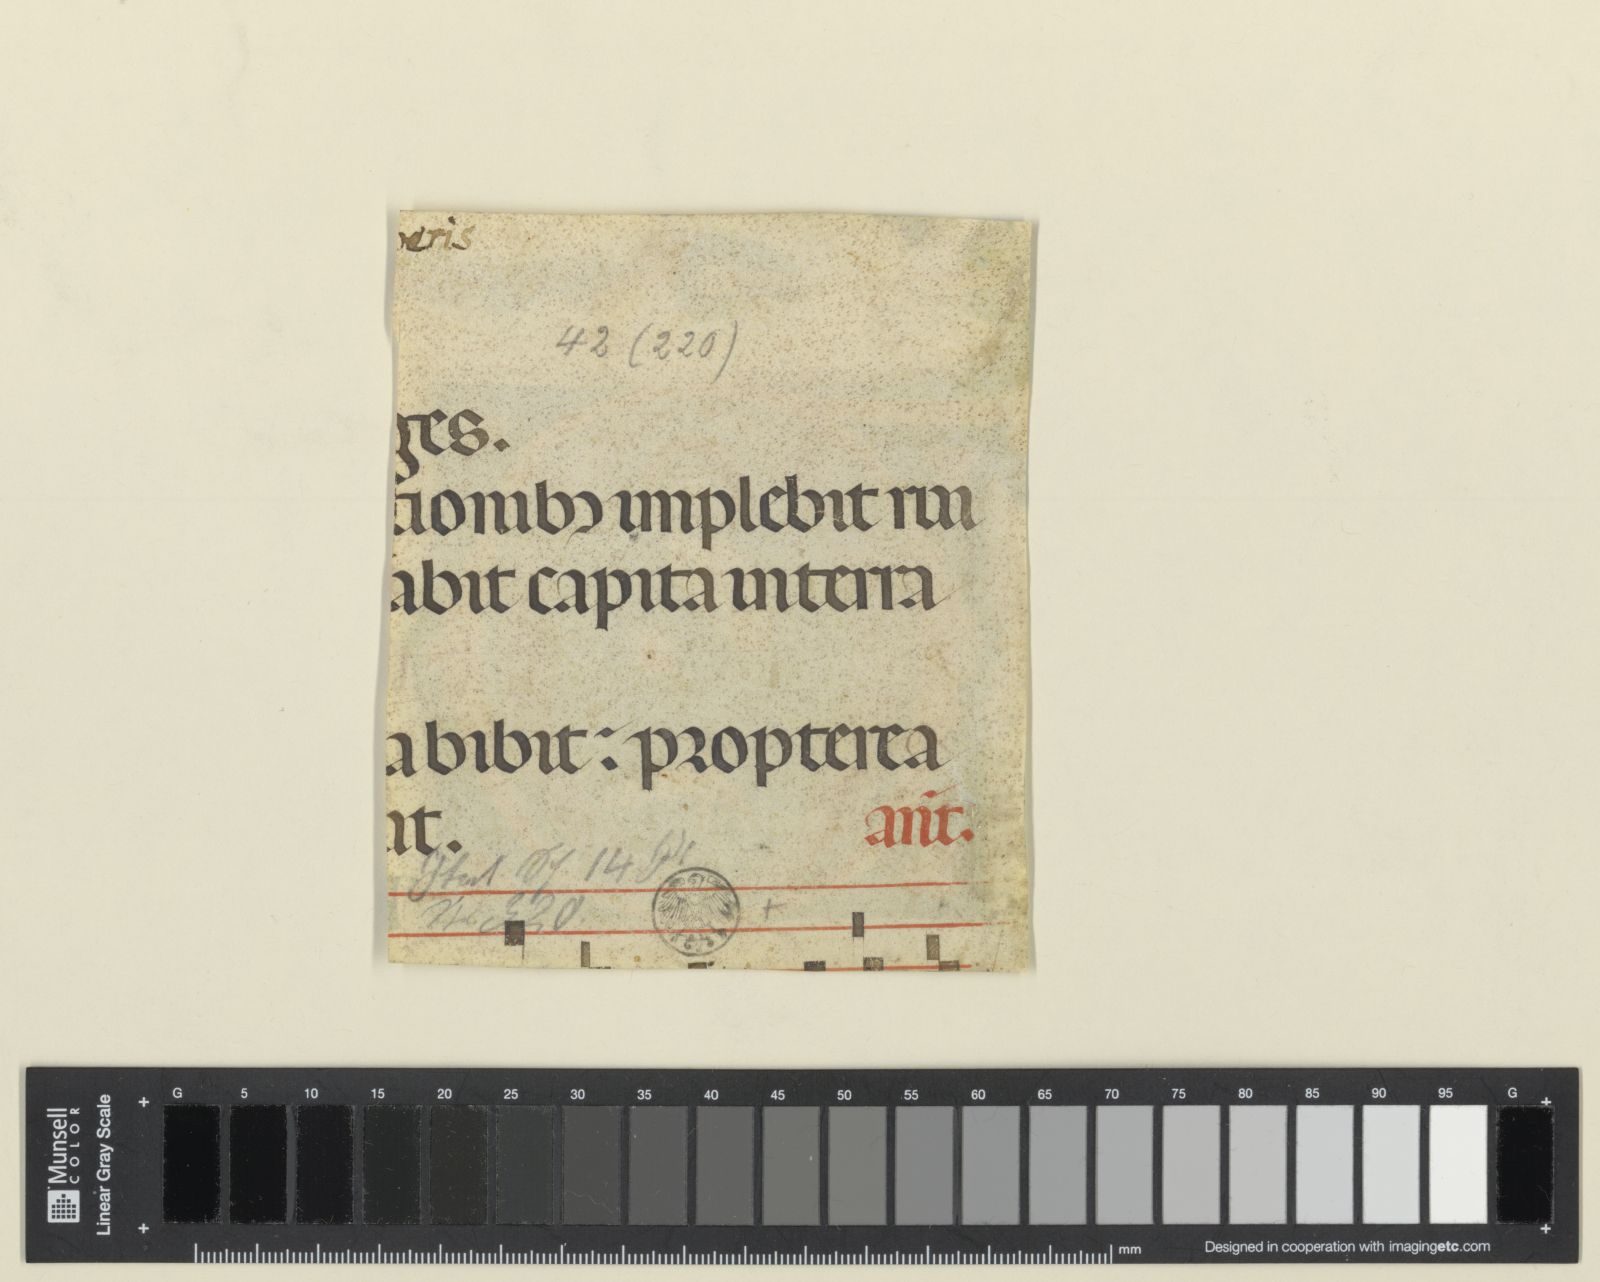 42 (220)
ges.
tionibꝫ implebit rui
abit capita in terra
a bibit: propterea
ut.
ant.
14
220.
+
Munsell
COLOR
Linear Gray Scale
G 5 10 15 20 25 30 35 40 45 50 55 60 65 70 75 80 85 90 95 G
mm
Designed in cooperation with imagingetc.com